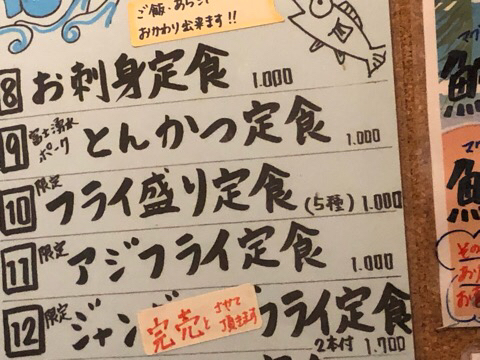 ご飯・あら汁
おかわり出来ます!!
8 お刺身定食 1.000
9 富士湧水ポーク とんかつ定食 1.000
10 限定 フライ盛り定食 (5種) 1.000
11 限定 アジフライ定食 1.000
12 限定 ジャン フライ定食
完売とさせて頂きます
2本付 1.700